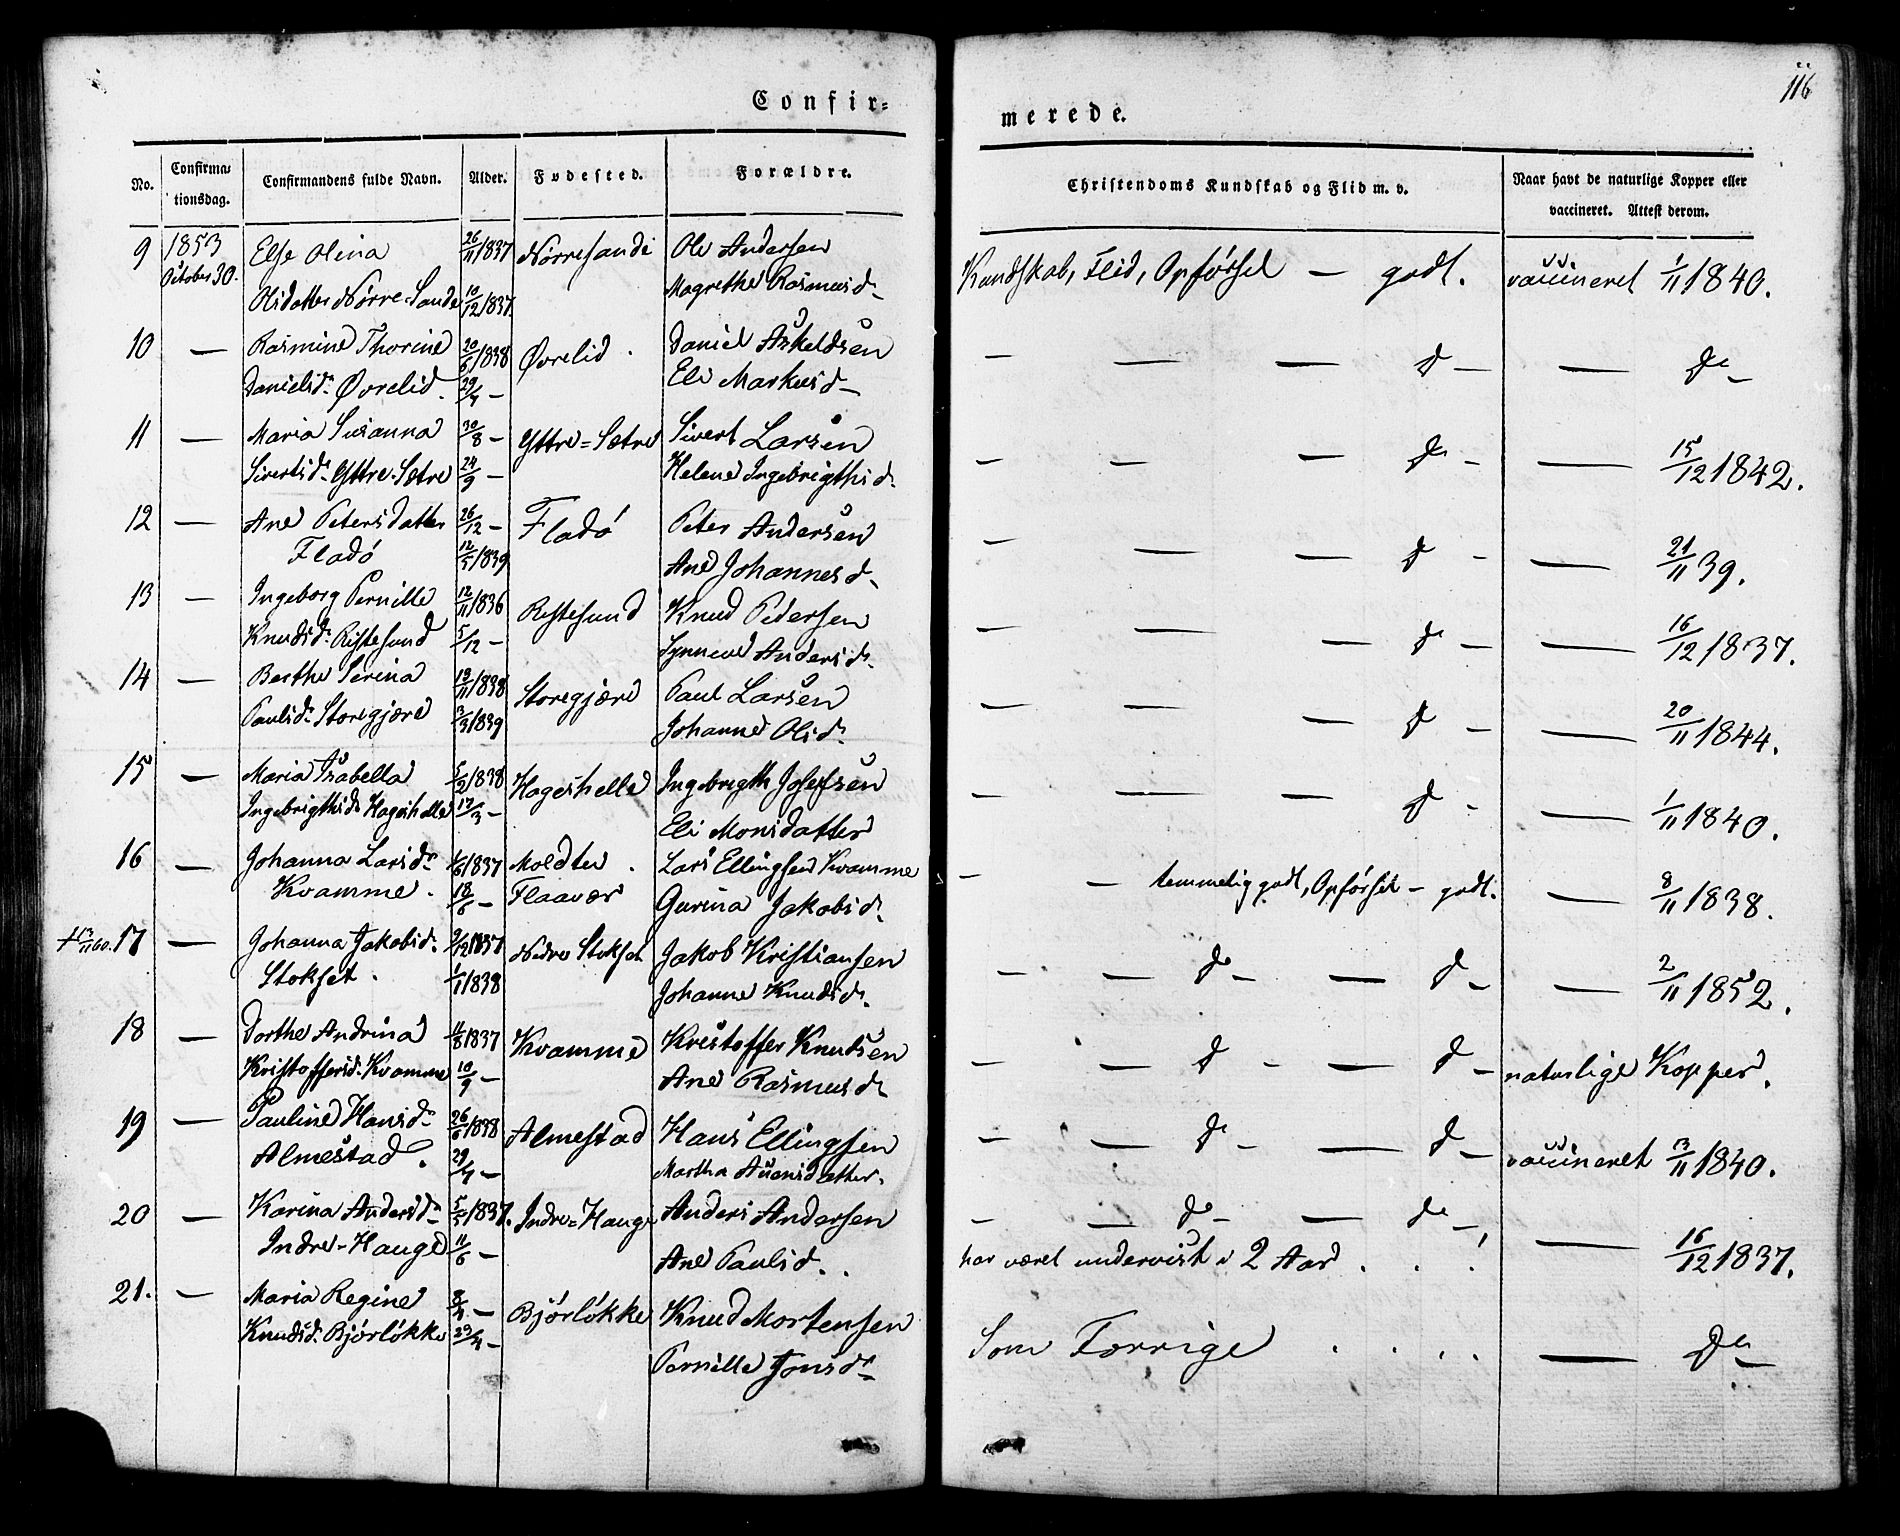 116
Confir-
merede.
No.
Confirma-
tionsdag.
Confirmandens fulde Navn.
Alder.
Fødested.
Forældre.
Christendoms Kundskab og Flid m. v.
Naar havt de naturlige Kopper eller
vaccineret. Attest derom.
9 1853 Else Olina 26/11 1837 Nørresande Ole Andersen
October 30. Olsdatter Nørre-Sande 10/12 1837. Magrethe Rasmusd.
Kundskab, Flid, Opførsel — godt. vaccineret 1/11 1840.
10 — Rasmine Thorine 20/6 1838 Øvrelid. Daniel Askeldsen
Danielsd. Øvrelid. 29/7 — Eli Markusd.
— — — d — — do —
11 — Maria Susanna 30/8 — Yttre=Sætre Sivert Larsen
Sivertsd. Yttre-Sætre 24/9 — Helene Ingebrigthsd.
— — — do — — 15/12 1842.
12 — Ane Petersdatter 26/12 — Fladö Peter Andersen
Fladö 12/5 1839 Ane Johannesd.
— — — d — — 21/11 39.
13 — Ingeborg Pernille 12/11 1836 Ristesund Knud Pedersen
Knudsd. Ristesund 5/12 — Synneve Andersd.
— — — do — — 16/12 1837.
14 — Berthe Serina 19/11 1838 Storegjære Paul Larsen
Paulsd. Storegjære 3/3 1839 Johanne Olsd.
— — — d — — 20/11 1844.
15 — Maria Isabella 5/2 1838 Hageshelle Ingebrigth Josefsen
Ingebrigthsd. Hageshelle 17/3 — Eli Monsdatter
— — — d — — 1/11 1840.
16 — Johanna Larsd. 1/6 1837 Moldten. Lars Ellingsen Kvamme
Kvamme. 18/6 — Flaavær Gurina Jakobsd.
— — temmelig godt, Opførsel — godt. — 8/11 1838.
17 — Johanna Jakobsd. 9/12 1837 Nedre Stokset Jakob Kristiansen
Stokset. 1/1 1838 Johanne Knudsd.
— — do — — d — — 2/11 1852.
18 — Dorthe Andrina 11/8 1837 Kvamme Kristoffer Knudsen
Kristoffersd. Kvamme 10/9 — Ane Rasmusd.
— — d — — d — naturlige Kopper.
19 — Pauline Hansd. 26/6 1838 Almestad Hans Ellingsen
Almestad. 29/7 — Martha
— — do — — d — vaccineret 13/11 1840.
20 — Karina Andersd. 5/5 1837. Indre=Hauge Anders Andersen
Indre-Hauge 11/6 — Ane Paulsd.
— — do — — do —
har været undervist i 2 Aar . . . — 16/12 1837.
21. — Maria Regine 8/4 — Bjørløkke Knud Mortensen
Knudsd. Bjørløkke 23/4 — Pernille Jonsd.
Som Forrige . . . . — do —